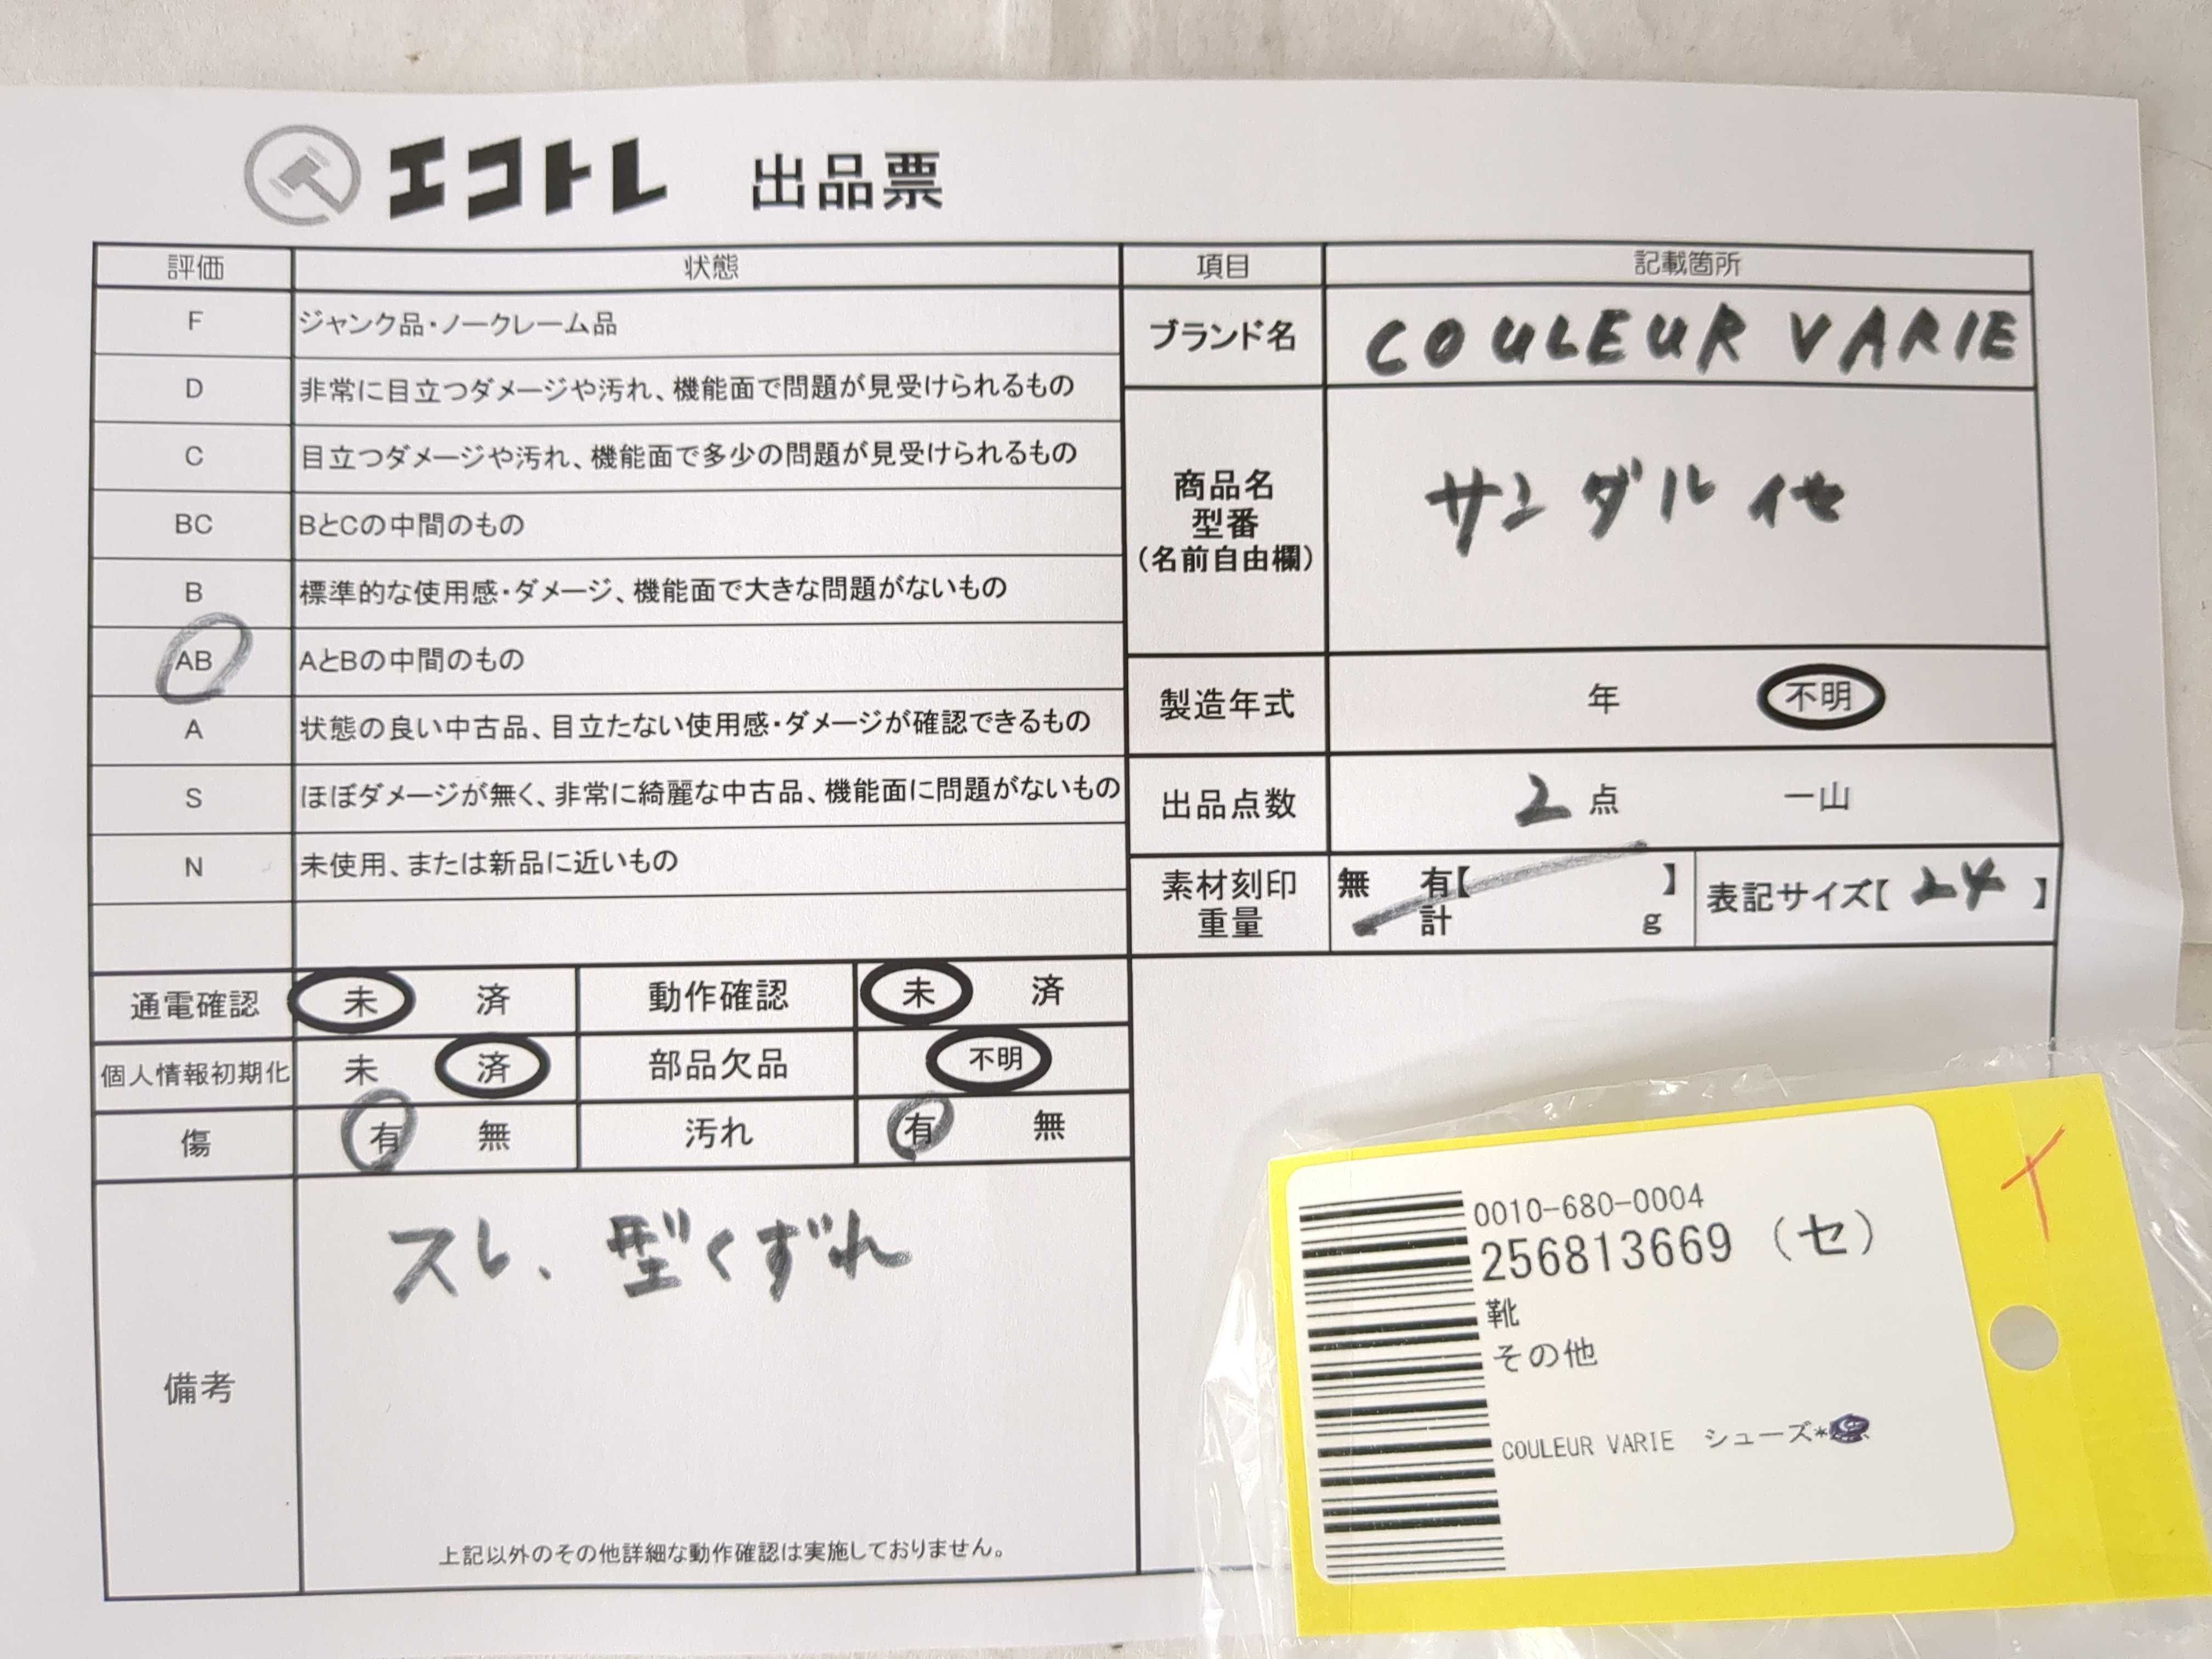 エコトレ 出品票
評価 状態 項目 記載箇所
F ジャンク品・ノークレーム品
D 非常に目立つダメージや汚れ、機能面で問題が見受けられるもの
C 目立つダメージや汚れ、機能面で多少の問題が見受けられるもの
BC BとCの中間のもの
B 標準的な使用感・ダメージ、機能面で大きな問題がないもの
AB AとBの中間のもの
A 状態の良い中古品、目立たない使用感・ダメージが確認できるもの
S ほぼダメージが無く、非常に綺麗な中古品、機能面に問題がないもの
N 未使用、または新品に近いもの
ブランド名 COULEUR VARIE
商品名
型番
(名前自由欄)
サンダル 他
製造年式 年 不明
出品点数 2 点 一山
素材刻印
重量
無 有【 】
計 g
表記サイズ【 24 】
通電確認 未 済 動作確認 未 済
個人情報初期化 未 済 部品欠品 不明
傷 有 無 汚れ 有 無
備考
スレ、型くずれ
上記以外のその他詳細な動作確認は実施しておりません。
0010-680-0004
256813669 (セ)
靴
その他
COULEUR VARIE シューズ*